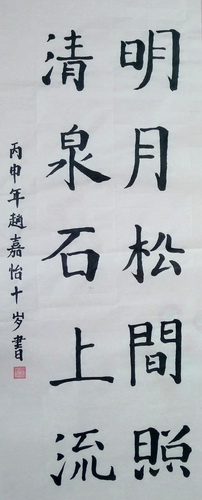 明月松間照
清泉石上流
丙申年趙嘉怡十岁書